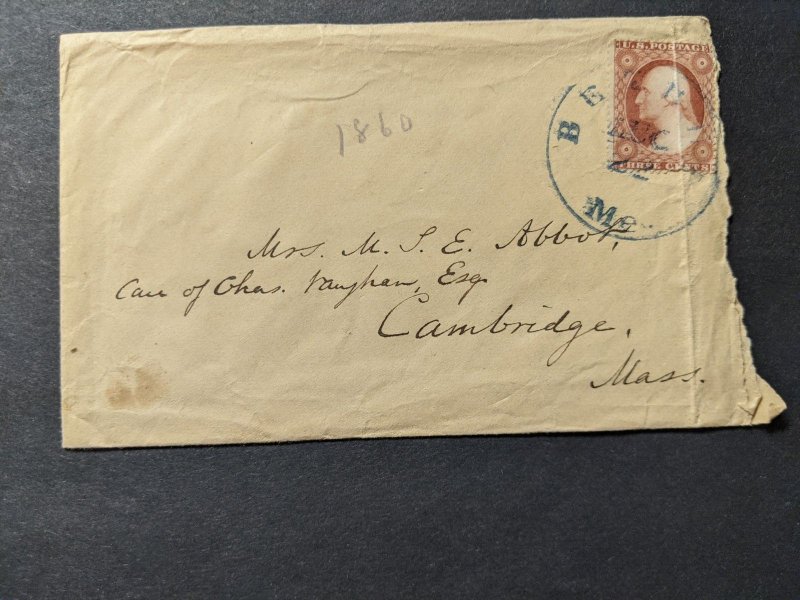 U.S. POSTAGE
THREE CENTS
Me.
1860
Mrs. M. S. E. Abbot,
Care of Chas. Vaughan, Esq.
Cambridge,
Mass.